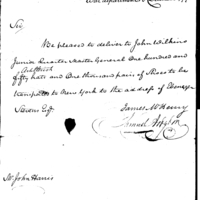 War department
Sir,
Be pleased to deliver to John Wilkins
Junior Quarter Master General One hundred and
fifty hats and One thousand pairs of Shoes to be
transported to New York to the address of Ebenezer
Stevens Esqr.
James McHenry
Samuel Hodgdon
Mr. John Harris